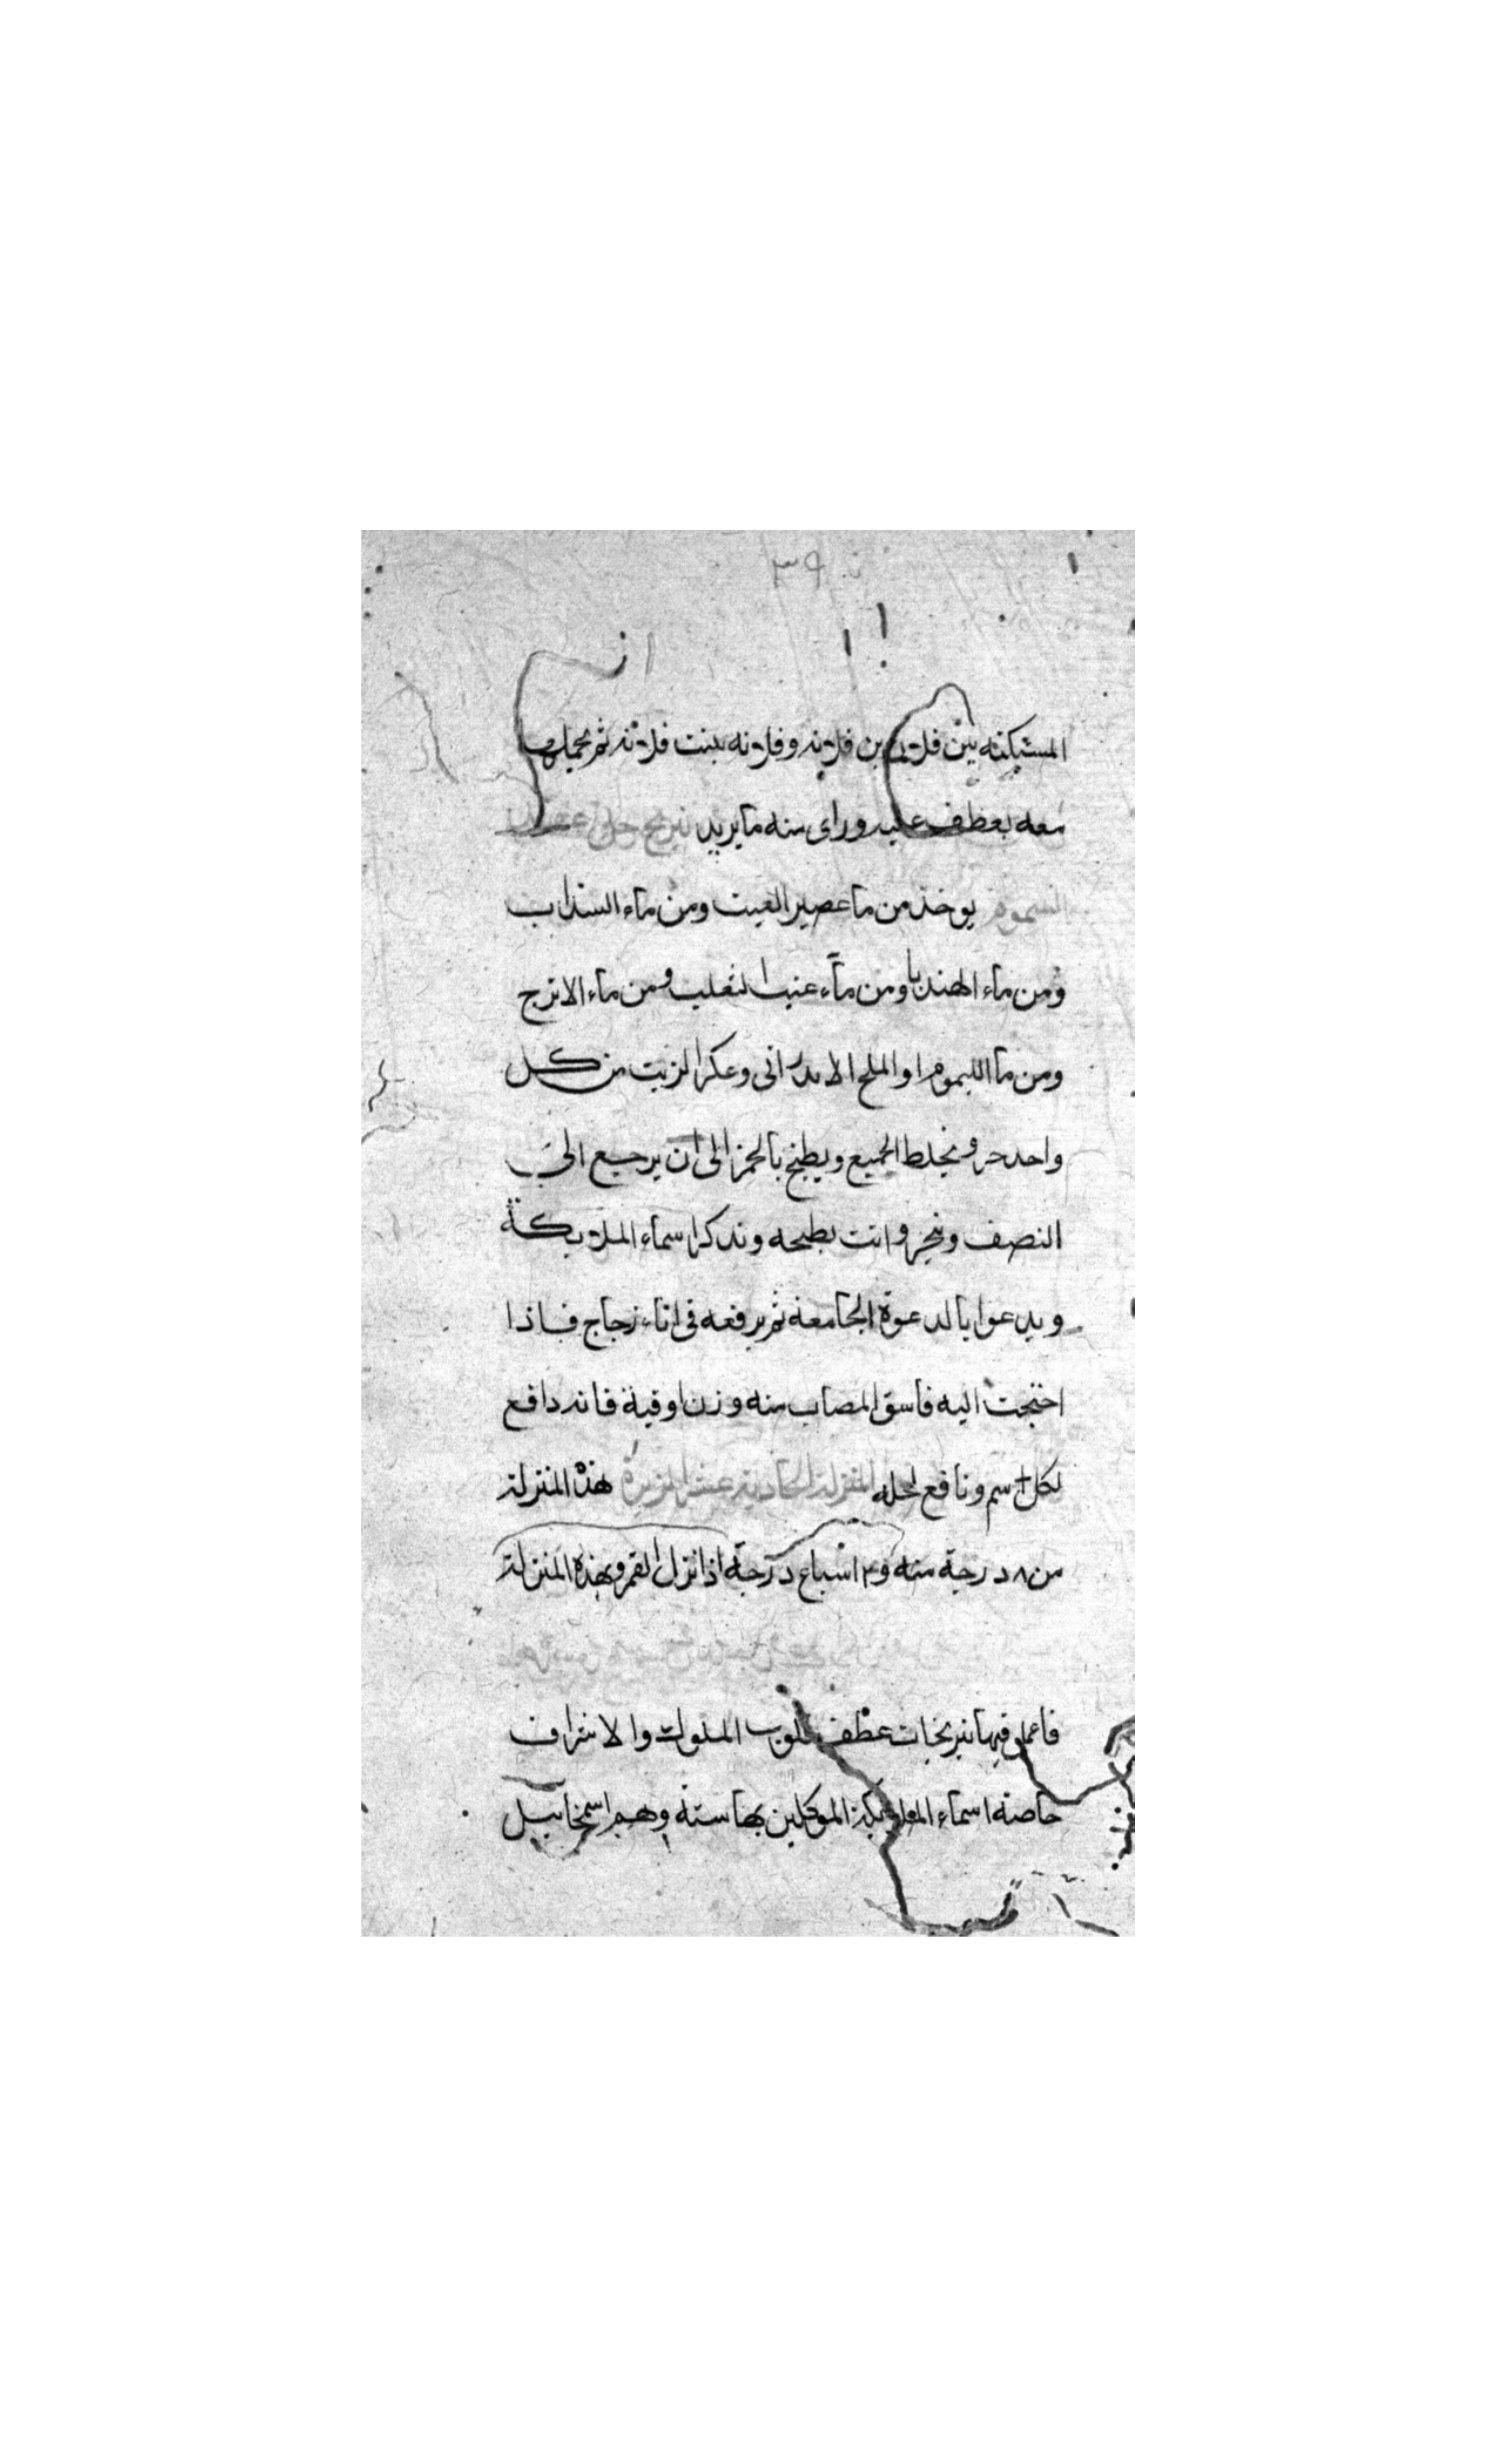 ٣٩
المستبكنه بين فلان بن فلانه وفلانه بنت فلانه ثم يحملها
معه يعطف عليه وراى منه ما يريد نيرنج
السموم يوخذ من ما عصير العيت ومن ماء السداب
ومن ماء الهندبا ومن ماء عنب الثعلب ومن ماء الاترج
ومن ما الليموم او الملح الاندرانى وعكر الزيت من كل
واحد جزو يخلط الجميع ويطبخ بالجمر الى ان يرجع الى
النصف وبنجر وانت بطبحه وتذكر اسماء الملايكة
ويدعوا بالدعوة الجامعة ثم يرفعه فى اناء زجاج فاذا
احتجت اليه فاسق المصاب منه وزن اوقية فانه دافع
لكل سم ونافع لحله المنزلة الحادية عشر الزبرة هذه المنزلة
من ٨ درجة منه و٣ اسباع درجة اذا نزل القمر وبهذه المنزلة
فاعمل فيها نيرنجات عطف قلوب الملوك والاشراف
خاصة اسماء الملايكة الموكلين بها ستة وهم اسمخاييل